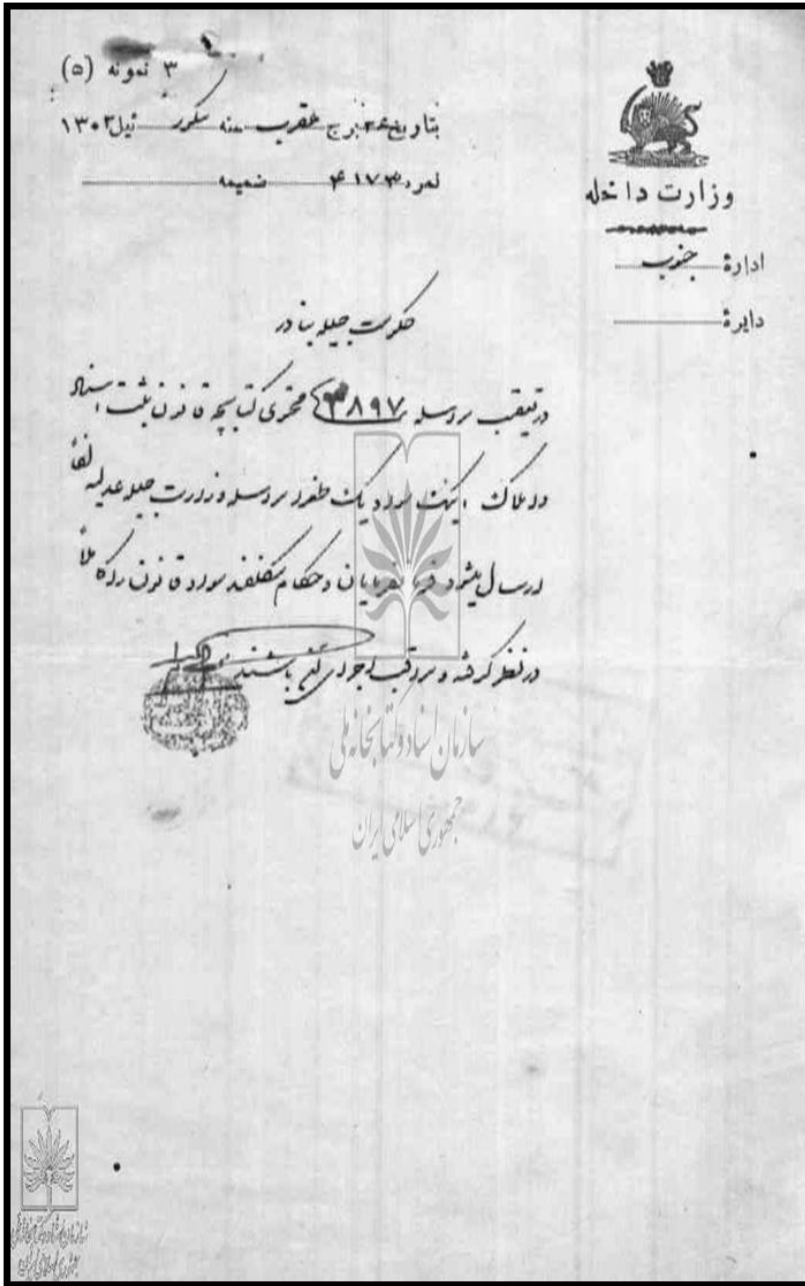 ۳ نمونه (۵)
بتاریخ ۲۶ برج عقرب سنه تنگوز ئیل ۱۳۰۲
نمره ۴۱۷۳ ضمیمه
وزارت داخله
اداره جنوب
دایره
حکومت جلیله بنادر
در تعقیب مرسله ۳۸۹۷ محتوی کتابچه قانون ثبت اسناد
و املاک اینک سواد یک طغرا مرسله وزارت جلیله عدلیه لفاً
ارسال میشود فرمانفرمایان و حکام مکلفند مواد قانون را کاملاً
در نظر گرفته و مراقب اجرای آن باشند
سازمان اسناد و کتابخانه ملی
جمهوری اسلامی ایران